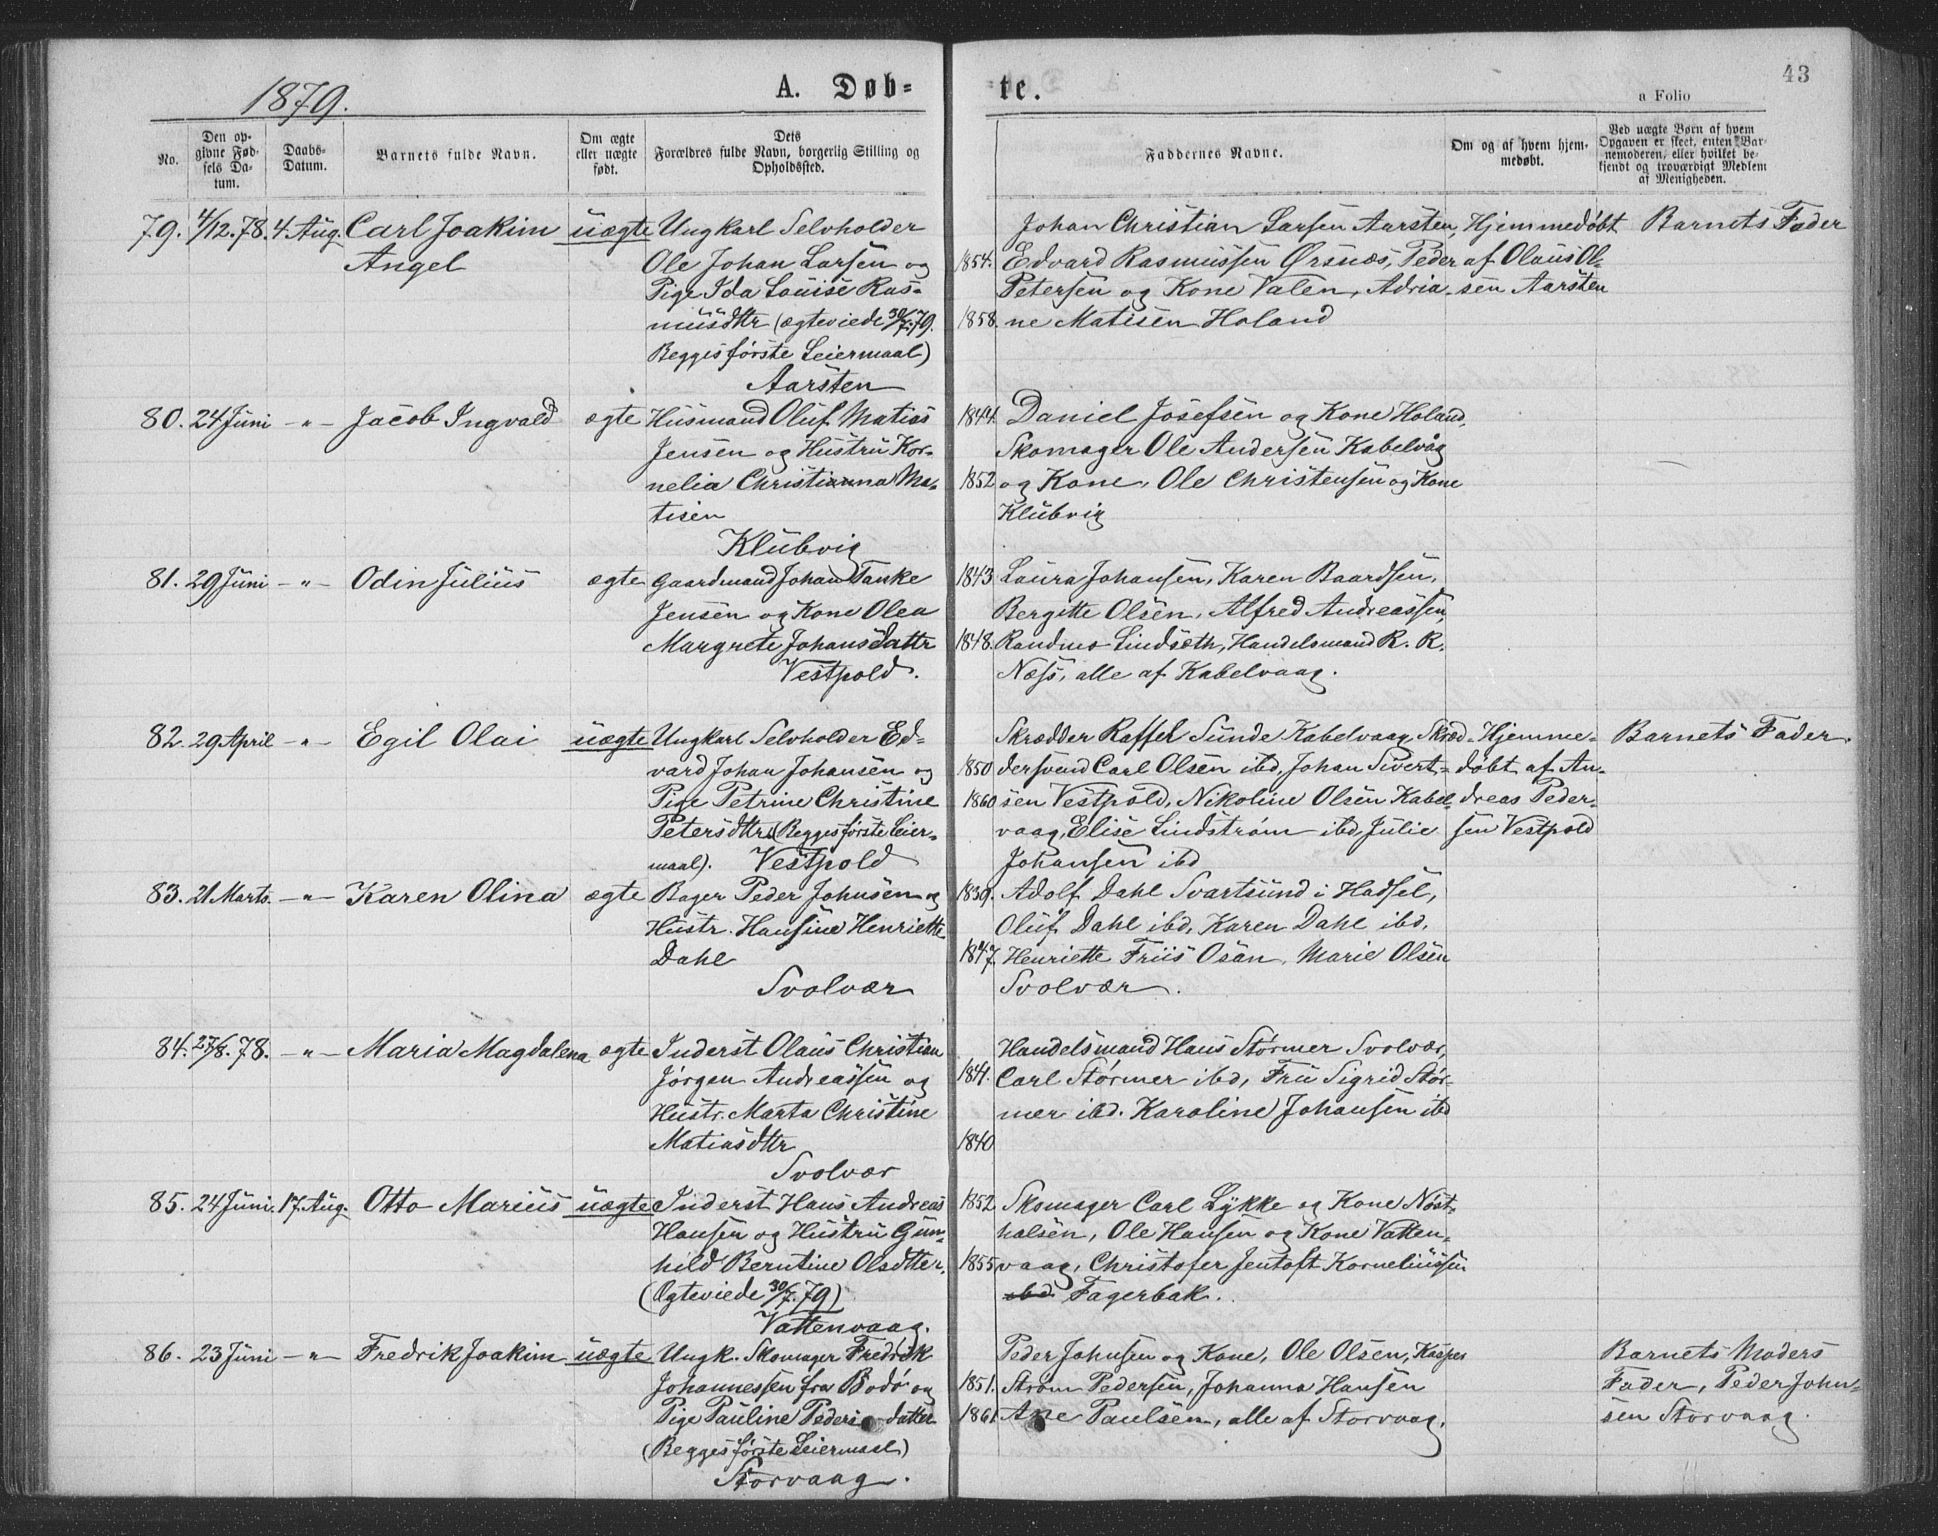 1879.
A. Døb-
te.
43
a Folio
No.
Den op-
givne Fød-
sels Da-
tum.
Daabs-
Datum.
Barnets fulde Navn.
Om ægte
eller uægte
født.
Dets
Forældres fulde Navn, borgerlig Stilling og
Opholdssted.
Faddernes Navne.
Om og af hvem hjem-
medøbt.
Ved uægte Børn af hvem
Opgaven er skeet, enten Bar-
nemoderen, eller hvilket be-
kjendt og troværdigt Medlem
af Menigheden.
79. 4/12.78. 4 Aug. Carl Joakim
Angel
uægte
Ungkarl Selvholder
Ole Johan Larsen og
Pige Ida Louise Ras-
musdttr (ægteviede 30/7.79.
Begges første Leiermaal)
Aarsten
1854.
1858.
Johan Christian Larsen Aarsten,
Edvard Rasmussen Ørsnæs, Peder
Petersen og Kone Valen, Adria-
ne Matisen Holand
Hjemmedøbt
af Olaus Ol-
sen Aarsten
Barnets Fader
80. 24 Juni -"- Jacob Ingvald
ægte
Husmand Oluf Matias
Jensen og Hustru Kor-
nelia Christianna Ma-
tisen
Klubvig
1844.
1852
Daniel Josefsen og Kone Holand,
Skomager Ole Andersen Kabelvåg
og Kone, Ole Christensen og Kone
Klubvig
81. 29 Juni -"- Odin Julius
ægte
Gaardmand Johan Tanke
Jensen og Kone Olea
Margrete Johansdattr
Vestpold.
1843
1848.
Laura Johansen, Karen Baardsen,
Bergitte Olsen, Alfred Andreassen,
Randmo Lindseth, Handelsmand R. R.
Næss, alle af Kabelvaag.
82. 29 April -"- Egil Olai
uægte
Ungkarl Selvholder Ed-
vard Johan Johansen og
Pige Petrine Christine
Petersdttr (Begges første Leier-
maal). Vestpold
1850
1860
Skrædder Raffel Sunde Kabelvaag, Skræd-
dersvend Carl Olsen ibd, Johan Sivert-
sen Vestpold, Nikoline Olsen Kabel-
vaag, Elise Lindstrøm ibd, Julie
Johansen ibd
Hjemme-
døbt af An-
dreas Peder-
sen Vestpold
Barnets Fader.
83. 21 Marts. -"- Karen Olina
ægte
Bager Peder Johnsen og
Hustr. Hansine Henriette
Dahl
Svolvær
1839.
1847.
Adolf Dahl Svartsund i Hadsel,
Oluf Dahl ibd, Karen Dahl ibd,
Henriette Friis Osan, Marie Olsen
Svolvær.
84. 27/8.78. -"- Maria Magdalena
ægte
Inderst Olaus Christian
Jørgen Andreassen og
Hustr. Marta Christine
Matiasdttr
Svolvær
1841.
1840
Handelsmand Hans Størmer Svolvær,
Carl Størmer ibd, Fru Sigrid Stør-
mer ibd. Karoline Johansen ibd
85. 24 Juni. 17. Aug. Otto Marius
uægte
Inderst Hans Andreas
Hansen og Hustru Gun-
hild Berntine Olsdtter.
(Ægteviede 30/7.79)
Vattenvaag.
1852
1855
Skomager Carl Lykke og Kone Nøst-
halsen, Ole Hansen og Kone Vatten-
vaag, Christofer Jentoft Korneliussen
ibd. Fagerbak.
86. 23 Juni -"- Fredrik Joakim
uægte
Ungk. Skomager Fredrik
Johannessen fra Bodø og
Pige Pauline Peders datter
(Begges første Leiermaal)
Storvaag.
1851.
1861
Peder Johnsen og Kone, Ole Olsen, Kasper
Strøm Pedersen, Johanna Hansen
Ane Paulsen, alle af Storvaag.
Barnets Moders
Fader, Peder John-
sen Storvaag.